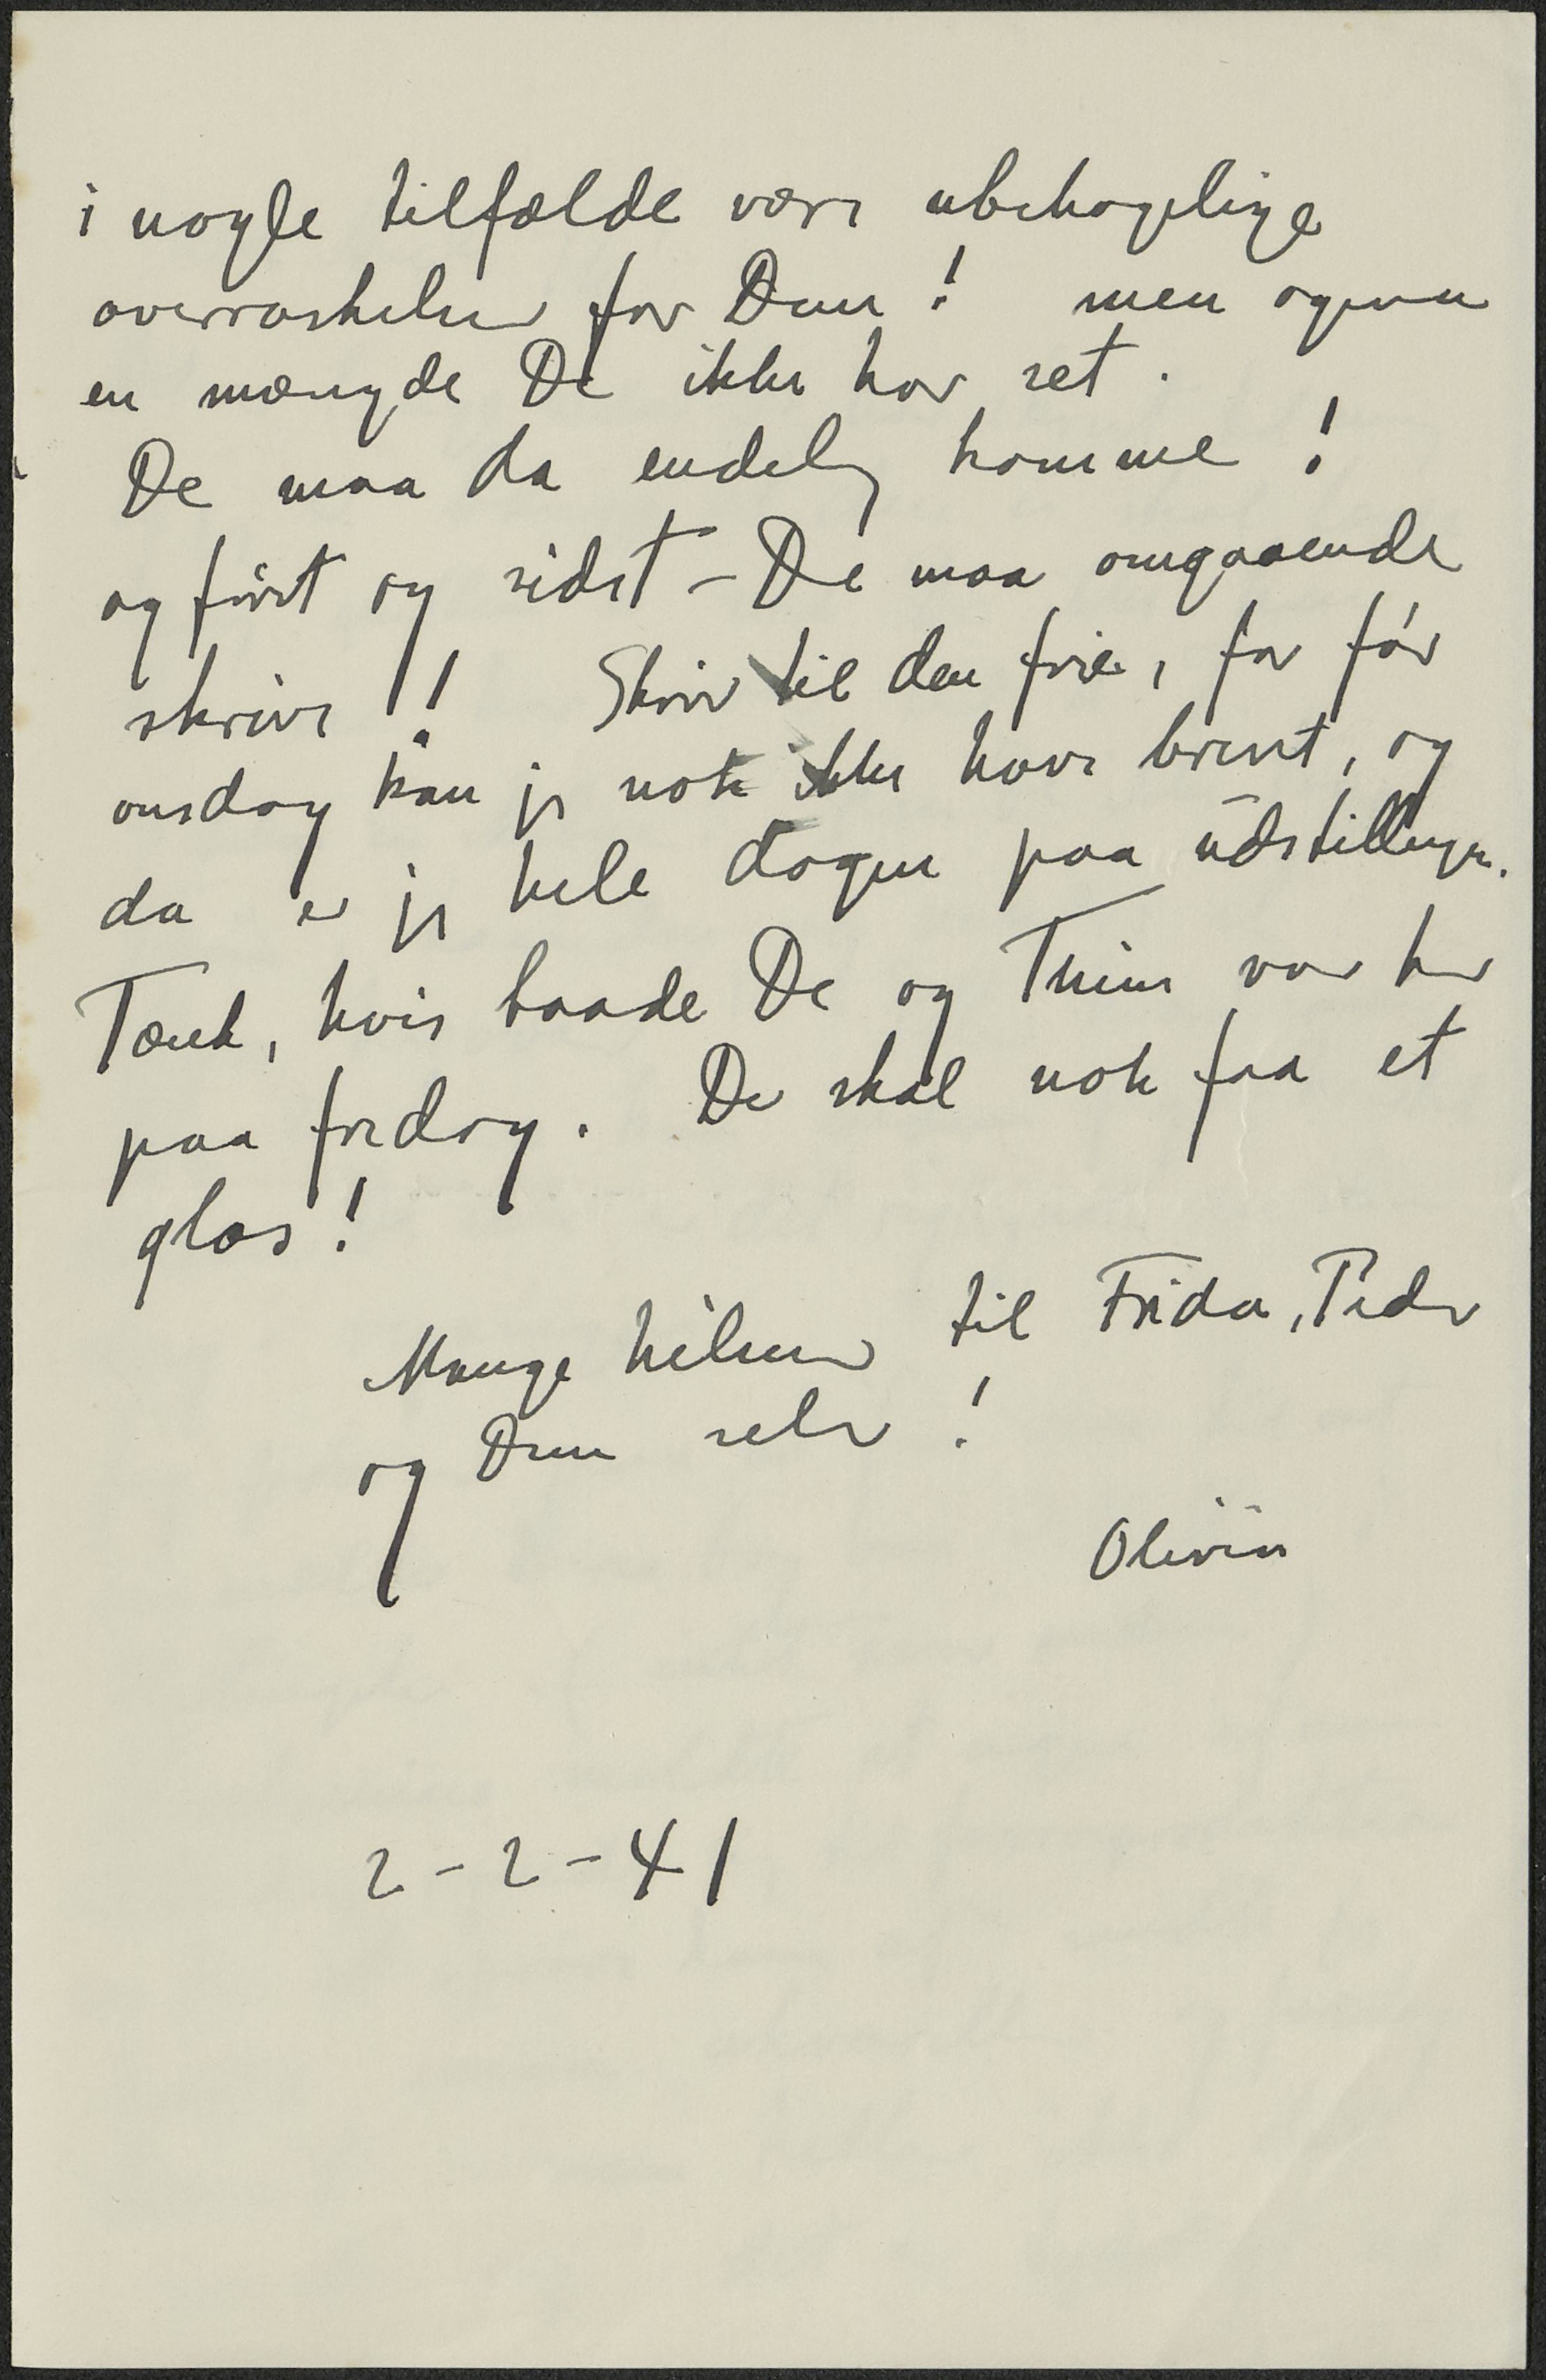 i nogle tilfælde være ubehagelige
overraskelser for Dem! men ogsaa
en mængde De ikke har set.
De maa da endelig komme!
og først og sidst – De maa omgaaende
skrive! Skriv til den frie, for før
onsdag kan jeg nok ikke have brevet, og
da er jeg hele dagen paa udstillingen.
Tænk, hvis baade De og var her
paa fredag. De skal nok faa et
glas!
Mange hilsener til Frida, Peder
og Dem selv!
Olivia
2-2-41